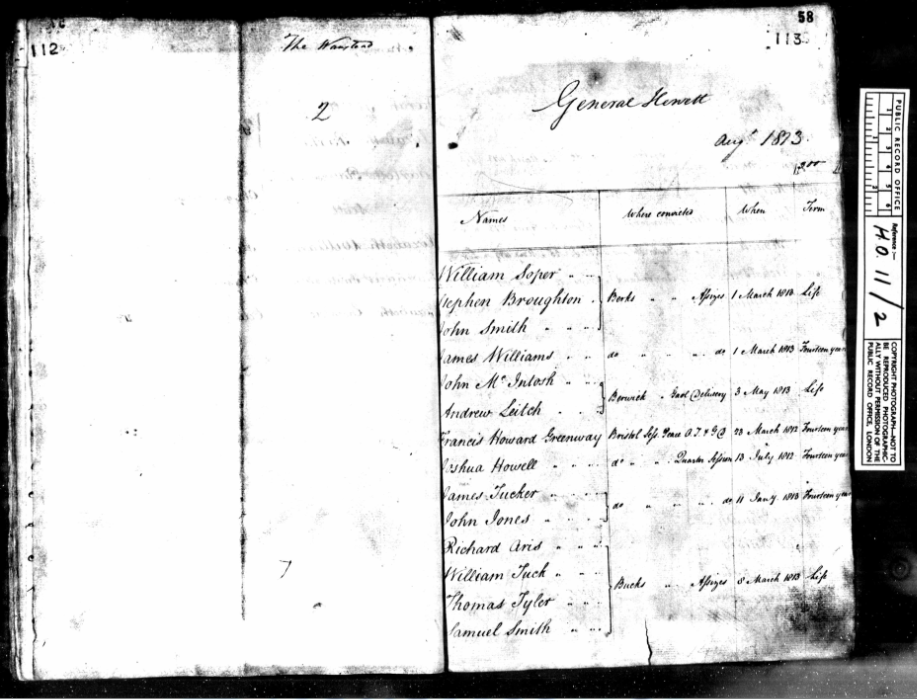 112
The Wanstead
2
58
113
General Hewett
Augt 1813
200
Names
Where convicted
When
Term
William Soper " "
Stephen Broughton "
John Smith " " "
Berks " " Assizes 1 March 1813 Life
James Williams " " do " " do 1 March 1813 Fourteen years
John Mc Intosh " "
Andrew Leitch " "
Berwick " Gaol Delivery 3 May 1813 Life
Francis Howard Greenway Bristol Sess. Peace O.T. & G D 23 March 1812 Fourteen years
Joshua Howell " " do " " Quarter Session 13 July 1812 Fourteen years
James Tucker " " "
John Jones " " "
do " " " do 11 Jany 1813 Fourteen years
Richard Aris " " "
William Tuck " " "
Thomas Tyler " "
Samuel Smith " "
Bucks " " Assizes 8 March 1813 Life
PUBLIC RECORD OFFICE
1 2 3 4 5 6
Reference :-
H.O. 11/2
COPYRIGHT PHOTOGRAPH—NOT TO
BE REPRODUCED PHOTOGRAPHIC-
ALLY WITHOUT PERMISSION OF THE
PUBLIC RECORD OFFICE, LONDON